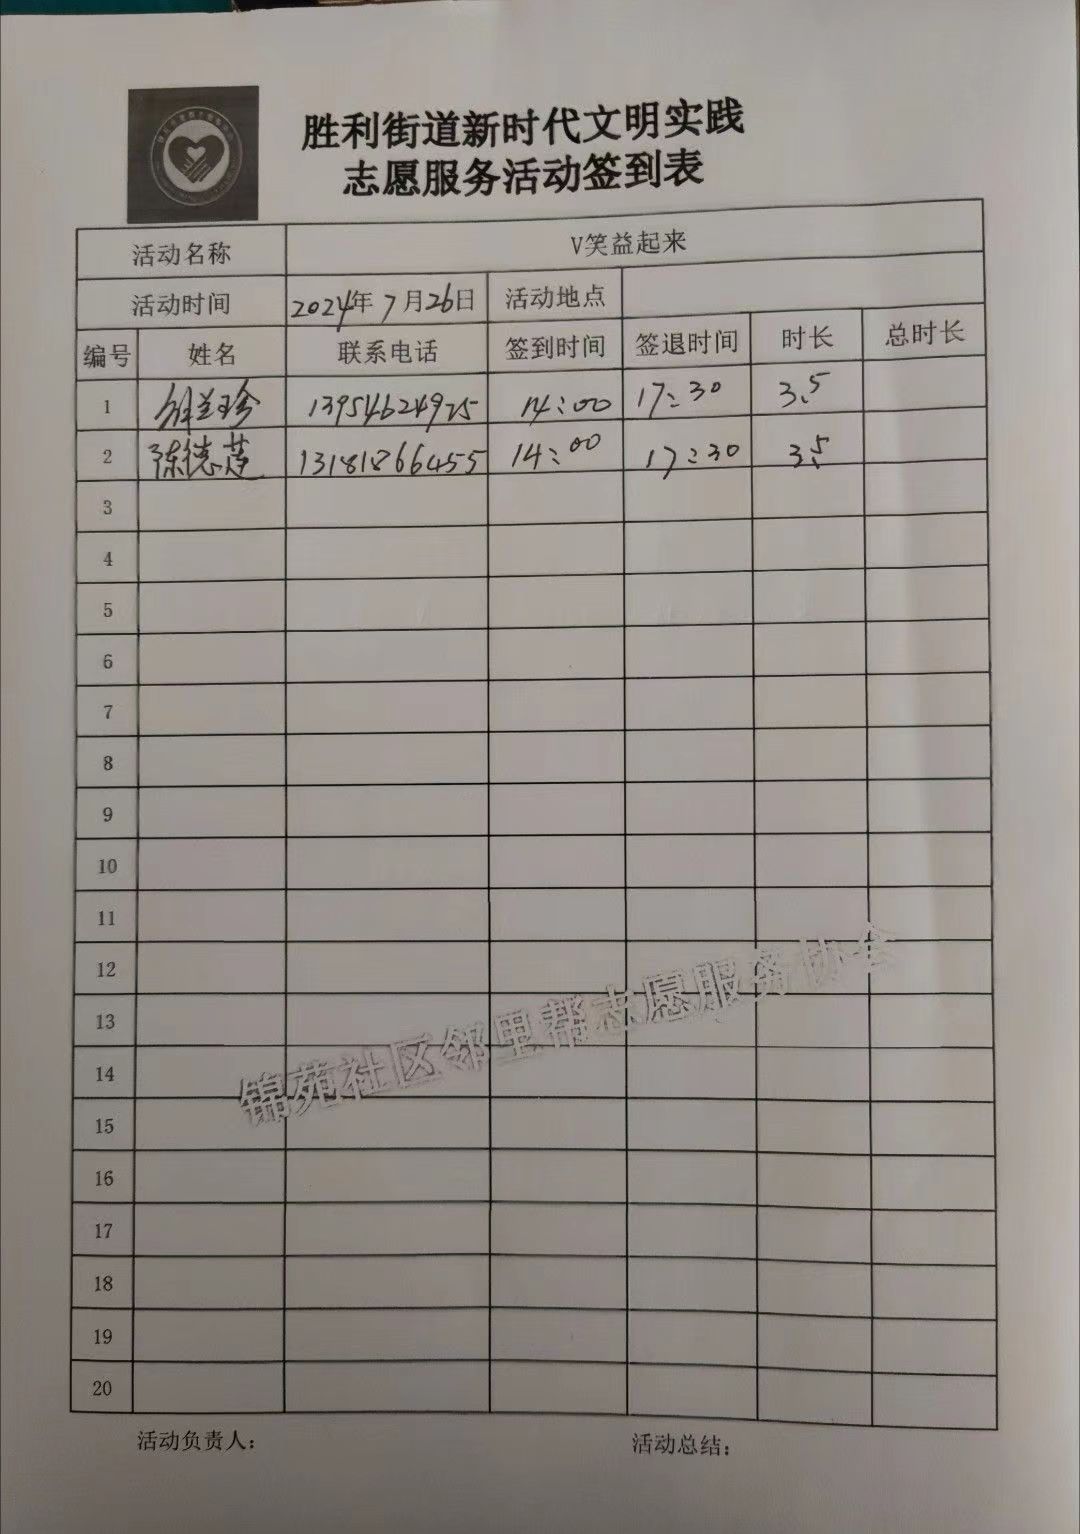 胜利街道新时代文明实践
志愿服务活动签到表
活动名称 V笑益起来
活动时间 2024年7月26日 活动地点
编号 姓名 联系电话 签到时间 签退时间 时长 总时长
1 兰珍 13954624925 14:00 17:30 3.5
2 陈德莲 13181866455 14:00 17:30 3.5
3
4
5
6
7
8
9
10
11
12
13
14
15
16
17
18
19
20
锦苑社区邻里帮志愿服务协会
活动负责人： 活动总结：